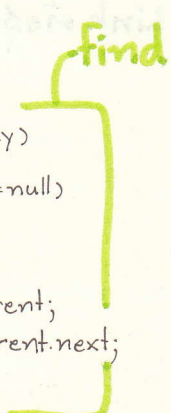 find
y)
=null)
rent;
rent.next;